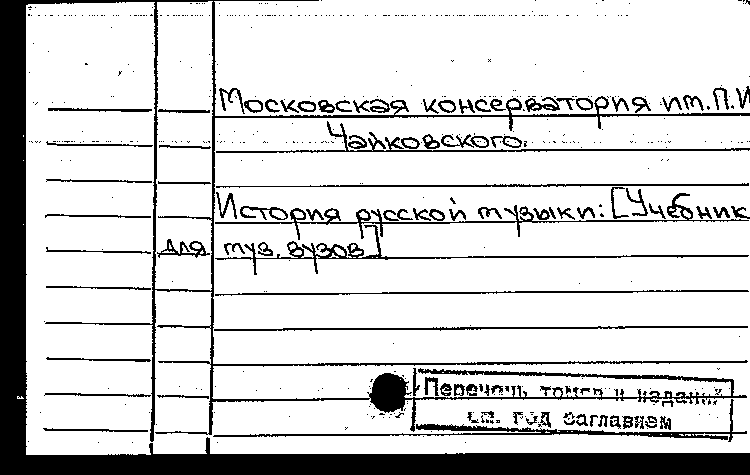 Московская консерватория им. П.И
Чайковского.
История русской музыки: [Учебник
для муз. вузов]
Перечень томов и изданий
см. под заглавием